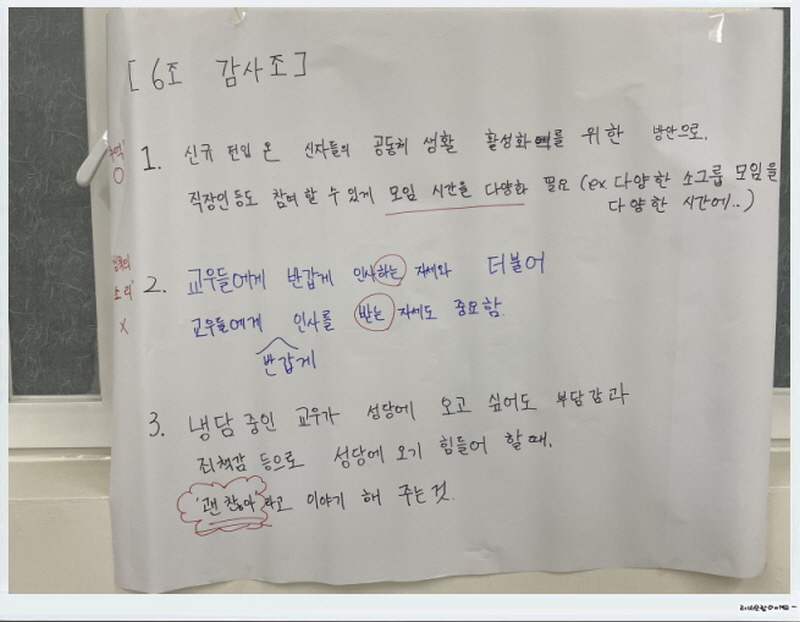 [ 6조 감사조 ]
구역
1. 신규 전입 온 신자들의 공동체 생활 활성화를 위한 방안으로,
직장인 등도 참여 할 수 있게 모임 시간을 다양화 필요 (ex 다양한 소그룹 모임을
다양한 시간에..)
침묵의
소리
X
2. 교우들에게 반갑게 인사하는 자세와 더불어
교우들에게 인사를 받는 자세도 중요함.
반갑게
3. 냉담 중인 교우가 성당에 오고 싶어도 부담감과
죄책감 등으로 성당에 오기 힘들어 할 때,
'괜찮아'라고 이야기 해 주는 것.